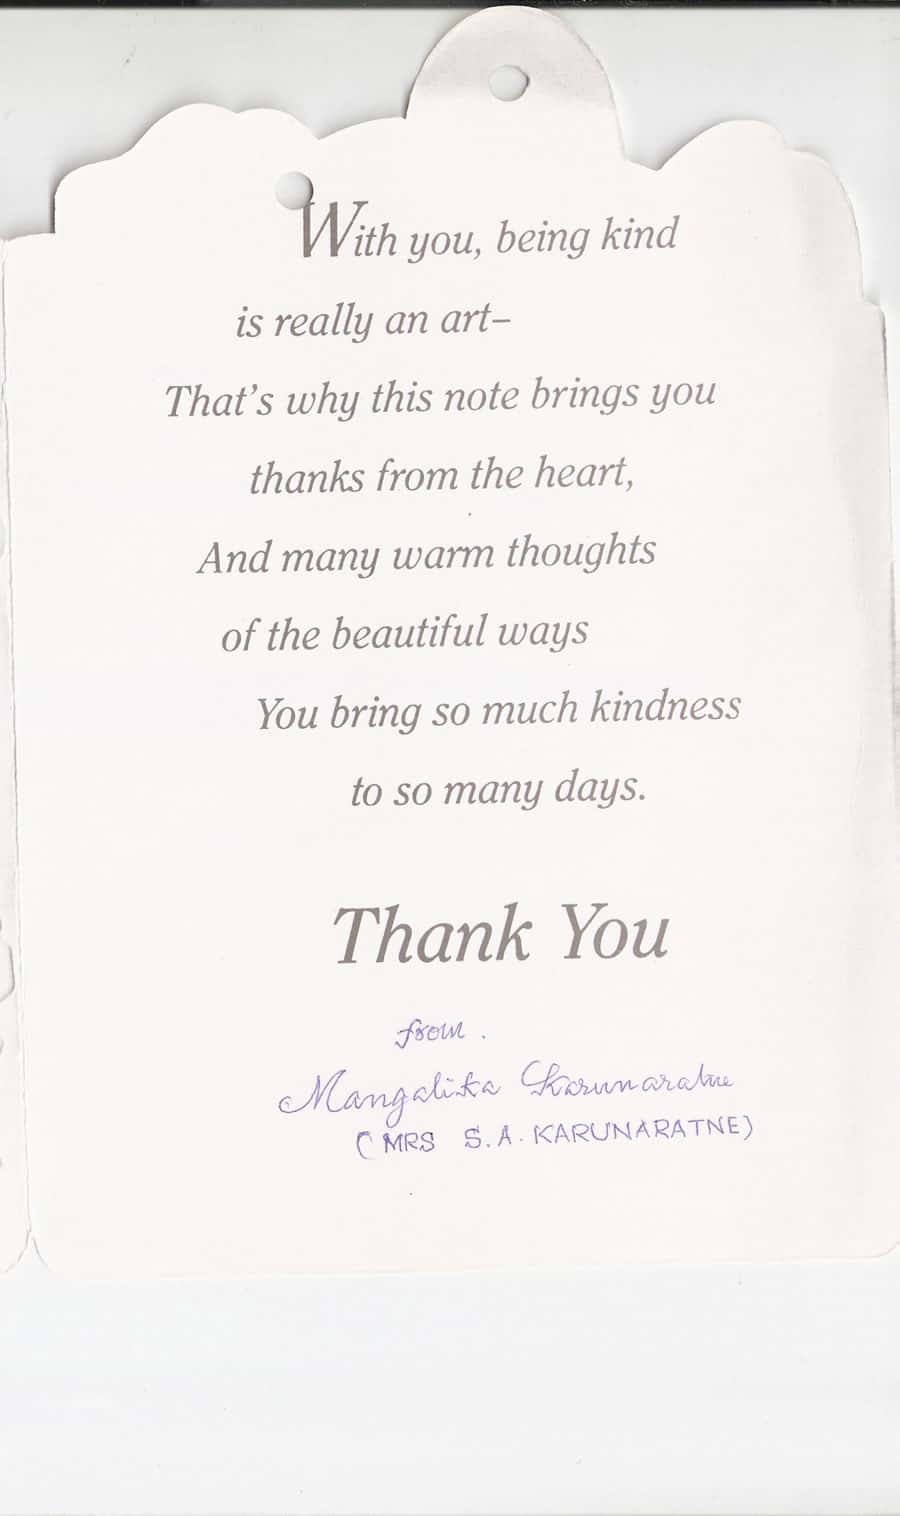 With you, being kind
is really an art–
That's why this note brings you
thanks from the heart,
And many warm thoughts
of the beautiful ways
You bring so much kindness
to so many days.
Thank You
from.
Mangalika Karunaratne
(MRS S.A. KARUNARATNE)